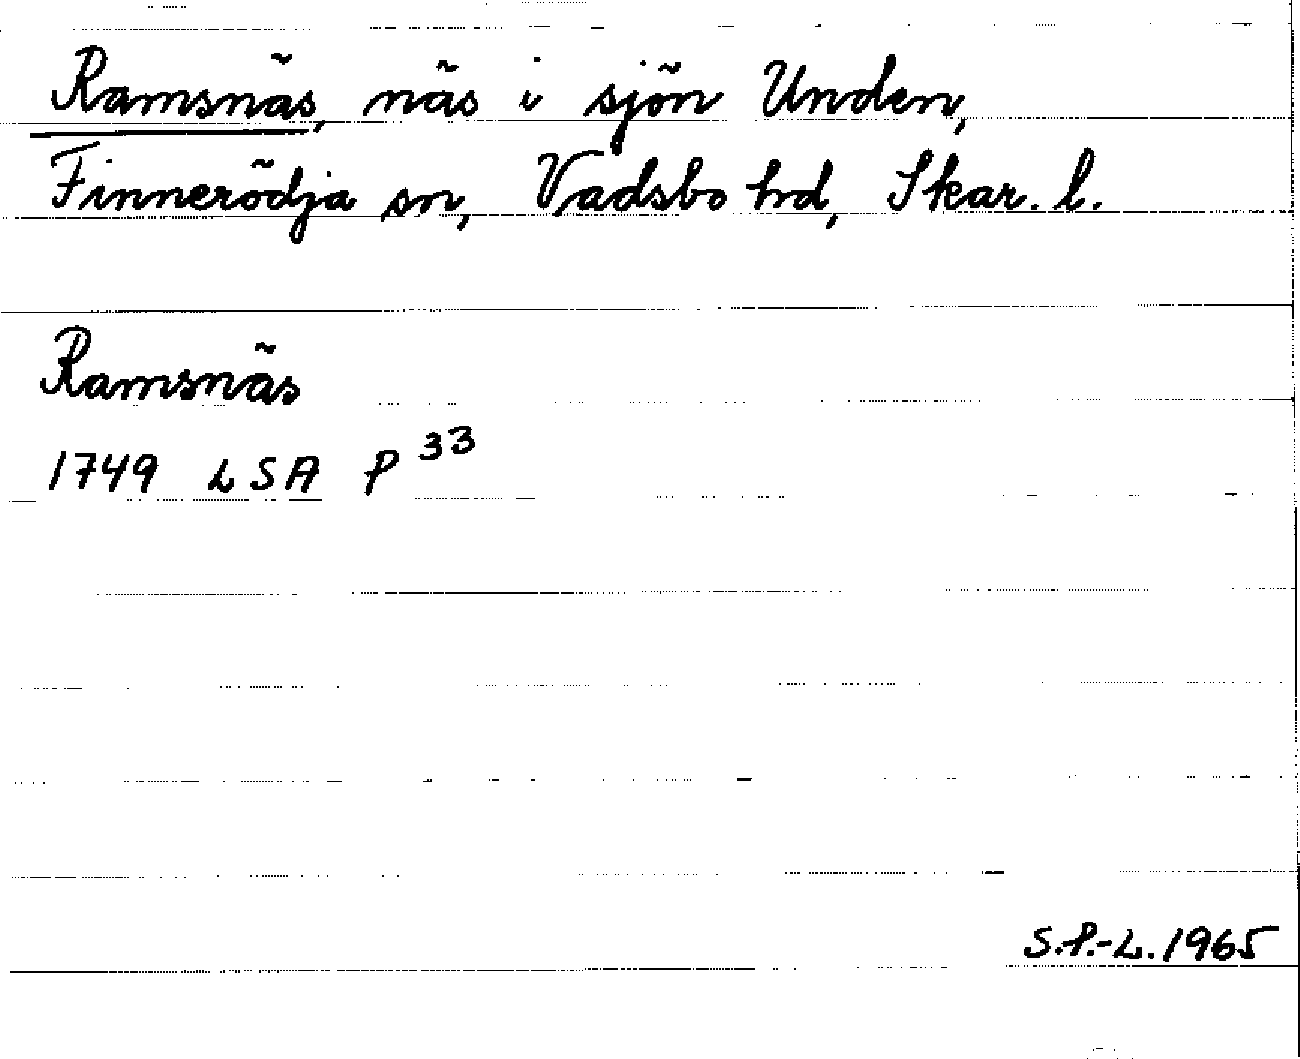 Ramsnäs, näs i sjön Unden,
Finnerödja sn, Vadsbo hd, Skar. l.
Ramsnäs
1749 LSA P 33
S.P.-L. 1965